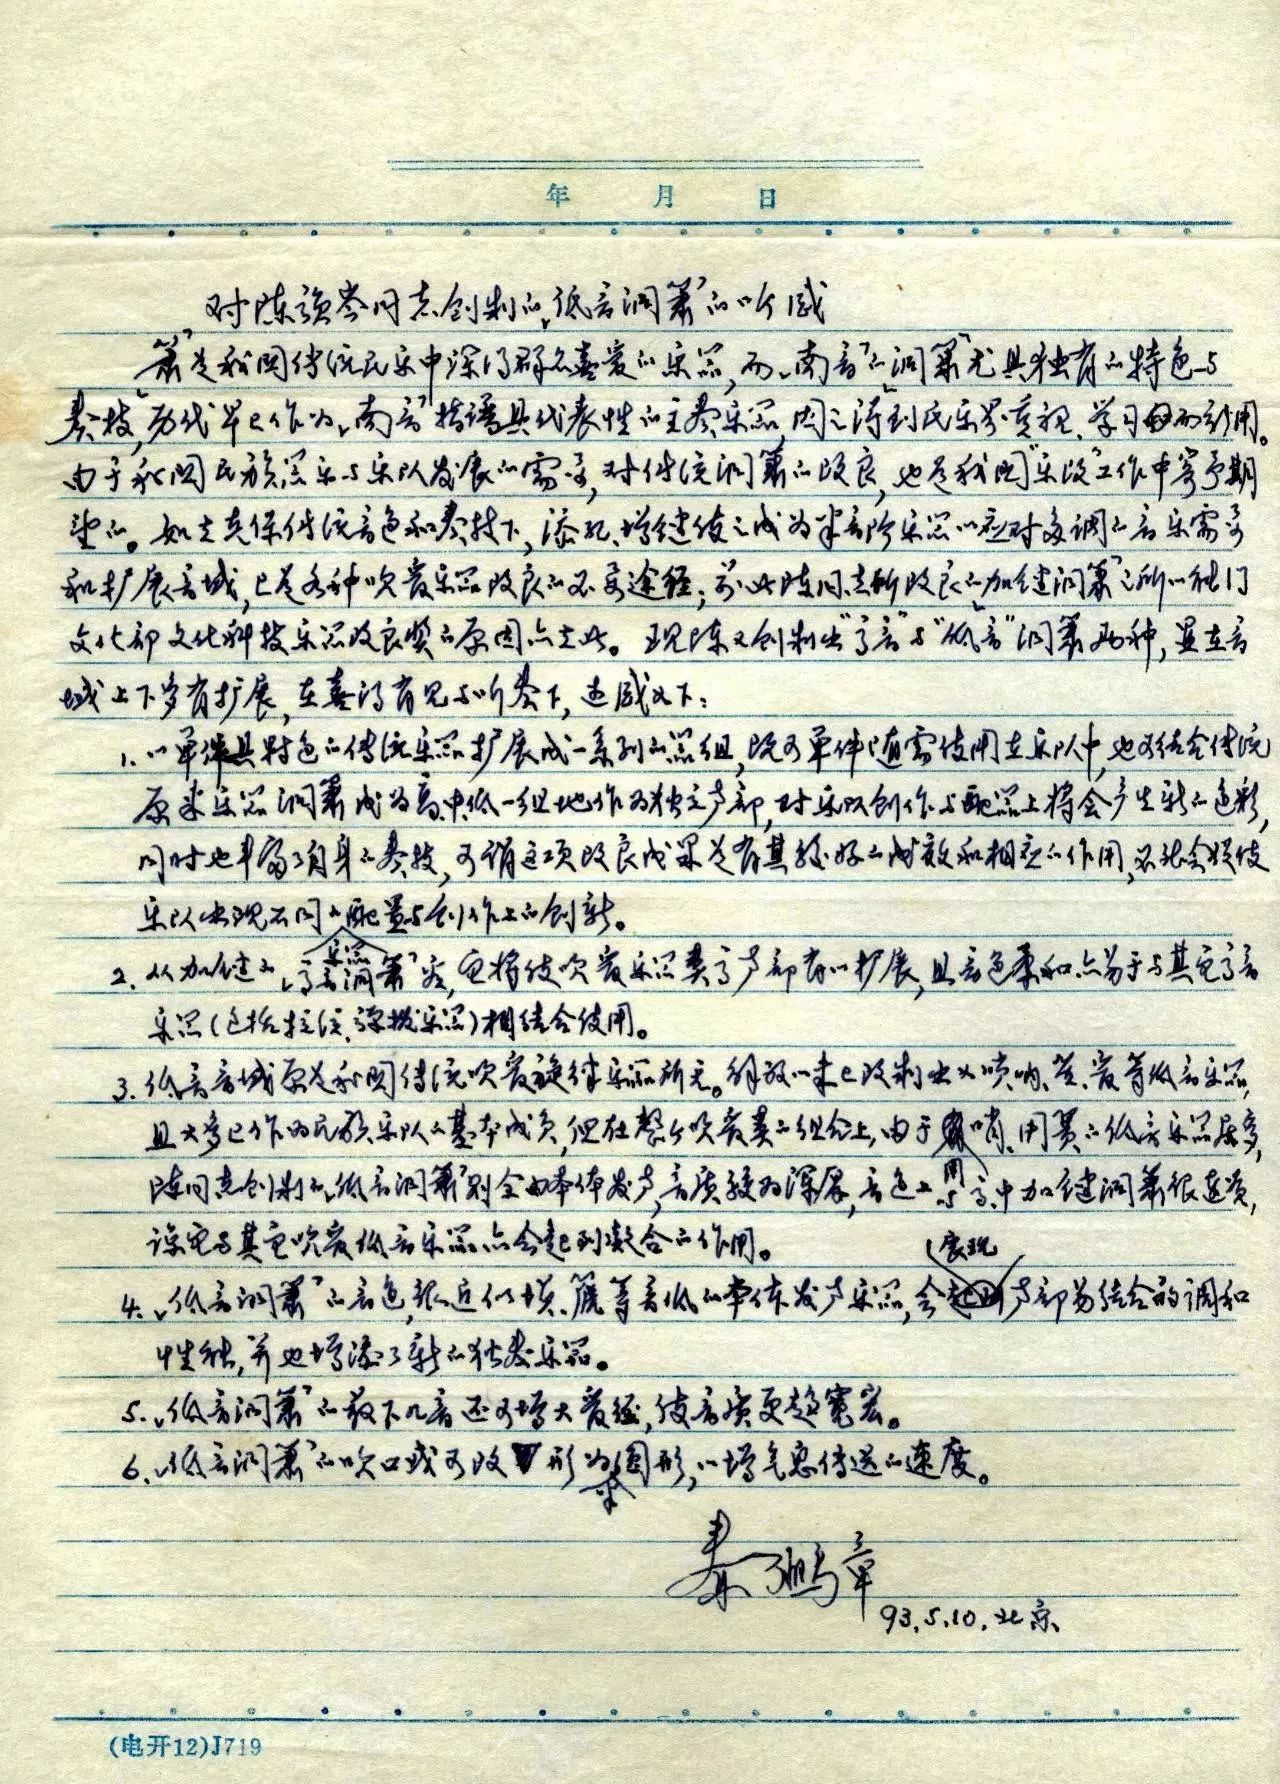 年 月 日
对陈强岑同志创制的“低音洞箫”的听感
“箫”是我国传统民乐中深得群众喜爱的乐器，而“南音”的“洞箫”尤具独有的特色与
奏技，历代早已作为“南音”指谱具代表性的主奏乐器，因之得到民乐界重视、学习和引用。
由于我国民族器乐与乐队发展的需要，对传统洞箫的改良，也是我国“乐改”工作中寄予期
望的。如在克保传统音色和奏技下，添孔、增键使之成为半音阶乐器以应对多调的音乐需要
和扩展音域，已是各种吹管乐器改良的必要途径；前此陈同志所改良的“加键洞箫”之所以能门
文化部文化科技乐器改良奖的原因亦在此。现陈又创制出“高音”与“低音”洞箫两种，显在音
域上下多有扩展，在喜得看见与听奏下，述感如下：
1. 以单件具特色的传统乐器扩展成一系列的器组，既可单件随需使用在乐队中，也可结合传统
原来乐器洞箫成为高、中、低一组地作为独立声部，对乐队创作与配器上将会产生新的色彩，
同时也丰富了自身的奏技，可谓这项改良成果是有其较好的成效和相应的作用，必然会促使
乐队出现不同的配置与创作上的创新。
2. 从加键的“高音洞箫”乐器看，它将使吹管乐器类高声部有以扩展，且音色柔和亦易于与其它高音
乐器（包括拉弦、弹拨乐器）相结合使用。
3. 低音音域原是我国传统吹管旋律乐器所无。解放以来已改制出如唢呐、笙、管等低音乐器，
且大多已作为民族乐队的基本成员，但在整个吹管类的组合上，由于用哨、用簧的低音乐器居多，
陈同志创制的“低音洞箫”则全由本体发声，音质较为深厚，音色上与高、中加键洞箫很连贯，
谅它与其它吹管低音乐器亦会起到凝合的作用。
4. “低音洞箫”的音色，很近似埙、篪等音低的本体发声乐器，会展现声部易结合的调和
性能，并也增添了新的独奏乐器。
5. “低音洞箫”的最下几音还可增大管径，使音质更趋宽宏。
6. “低音洞箫”的吹口或可改V形为半圆形，以增气息传送的速度。
秦鹏章
93.5.10.北京
(电开12)J719